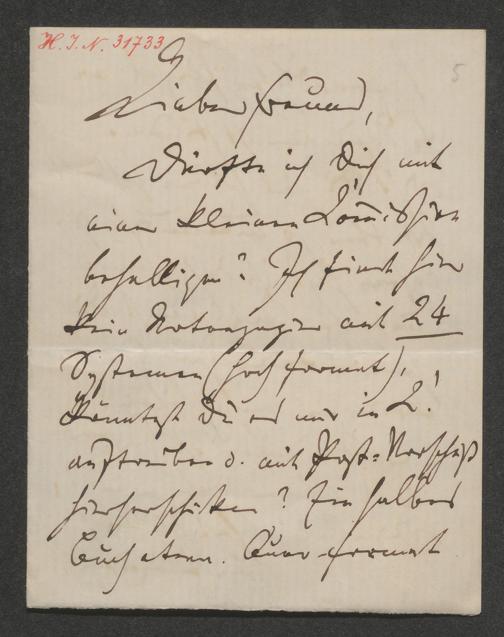 H. I. N. 31733
5
Lieber Freund,
Dürfte ich Dich mit
einer kleinen Commission
behelligen? Ich finde hier
kein Notenpapier mit 24
Systemen (Hochformat),
Könntest Du es mir in L.
auftreiben u. mit Post-Vorschuß
hierherschicken? Ein halbes
Buch etwa. Quer-format